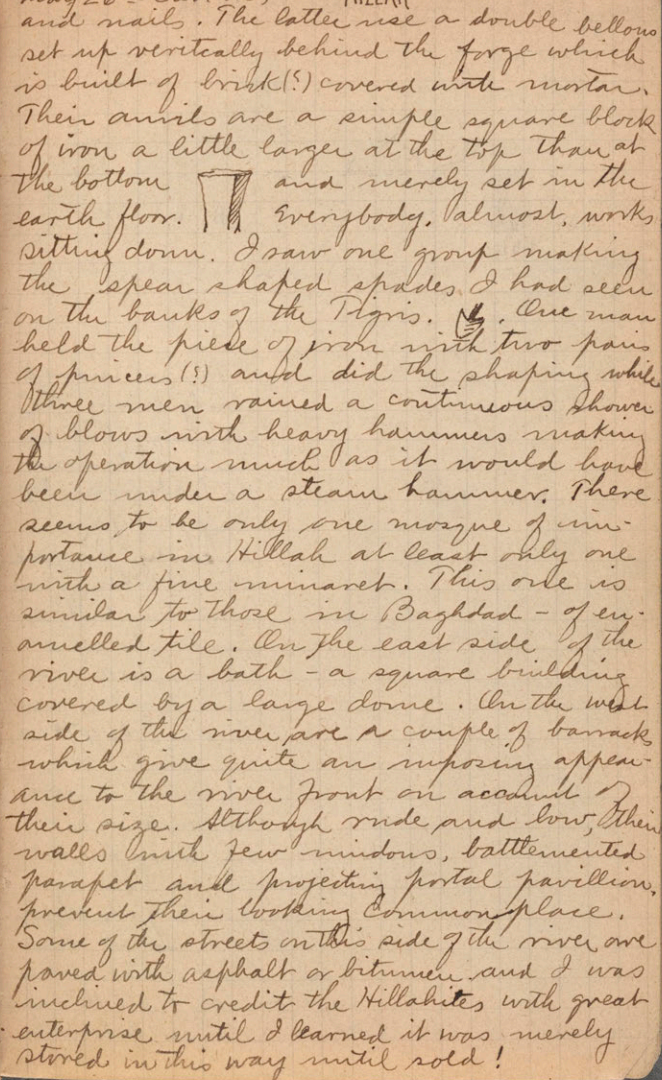 HILLAH
and nails. The latter use a double bellows
set up veritcally behind the forge which
is built of brick(?) covered with mortar.
Their anvils are a simple square block
of iron a little larger at the top than at
the bottom and merely set in the
earth floor. Everybody, almost, works
sitting down. I saw one group making
the spear shaped spades I had seen
on the banks of the Tigris. One man
held the piece of iron with two pairs
of pincers(?) and did the shaping while
three men rained a continuous shower
of blows with heavy hammers making
the operation much as it would have
been under a steam hammer. There
seems to be only one mosque of im-
portance in Hillah at least only one
with a fine minaret. This one is
similar to those in Baghdad – of en-
amelled tile. On the east side of the
river is a bath – a square building
covered by a large dome. On the west
side of the river are a couple of barracks
which give quite an imposing appear-
ance to the river front on account of
their size. Although rude and low, their
walls with few windows, battlemented
parapet and projecting portal pavillion,
prevent their looking commonplace.
Some of the streets on this side of the river are
paved with asphalt or bitumen and I was
inclined to credit the Hillahites with great
enterprise until I learned it was merely
stored in this way until sold!